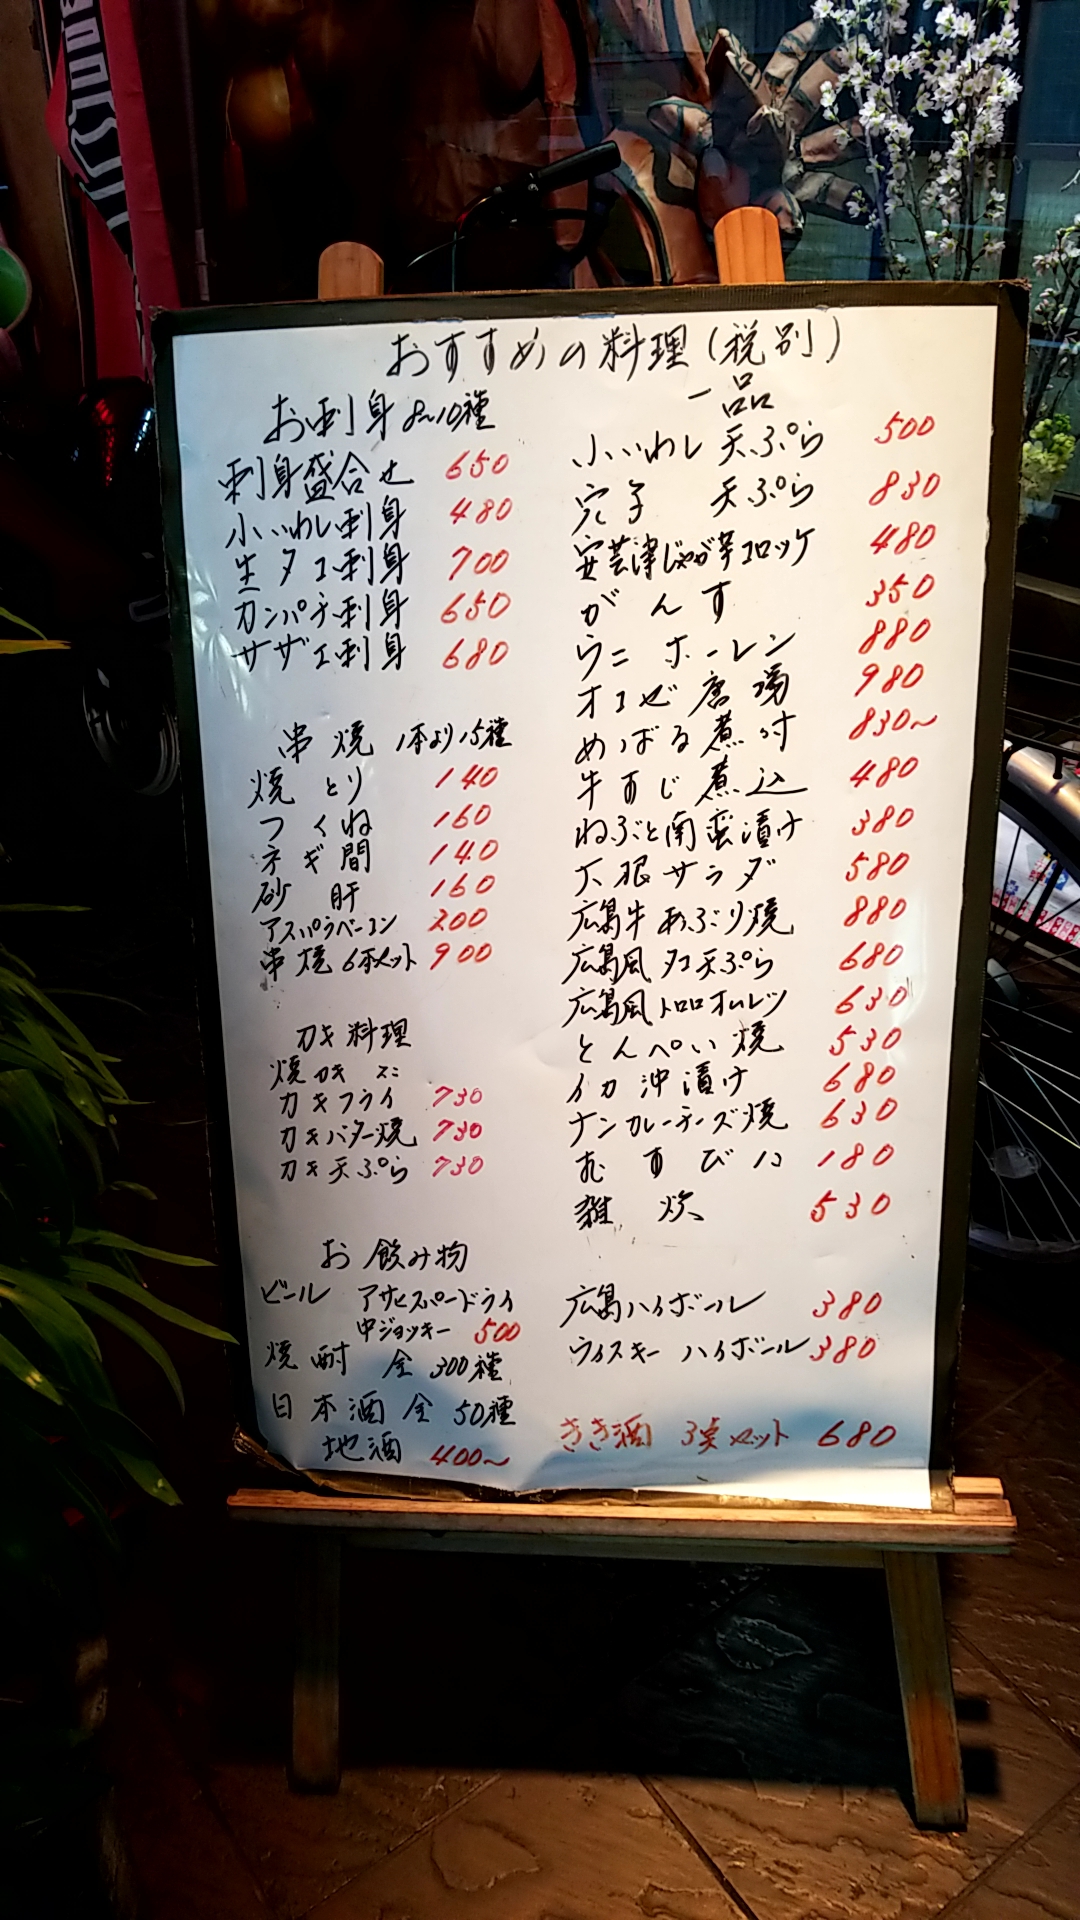 おすすめの料理(税別)
お刺身 8~10種
刺身盛合せ 650
小いわし刺身 480
生タコ刺身 700
カンパチ刺身 650
サザエ刺身 680
串焼 1本より15種
焼とり 140
つくね 160
ネギ間 140
砂肝 160
アスパラベーコン 200
串焼6本セット 900
カキ料理
焼カキ 二コ
カキフライ 730
カキバター焼 730
カキ天ぷら 730
一品
小いわし天ぷら 500
穴子 天ぷら 830
安芸津じゃが芋コロッケ 480
がんす 350
ウニホーレン 880
オコゼ唐揚 980
めばる煮付 830~
牛すじ煮込 480
ねぶと南蛮漬け 380
大根サラダ 580
広島牛あぶり焼 880
広島風タコ天ぷら 680
広島風トロロオムレツ 630
とんぺい焼 530
イカ沖漬け 680
ナンカレーチーズ焼 630
むすび 1コ 180
雑炊 530
お飲み物
ビール アサヒスーパードライ
中ジョッキー 500
焼酎 全300種
日本酒 全50種
地酒 400~
広島ハイボール 380
ウィスキーハイボール 380
きき酒 3点セット 680